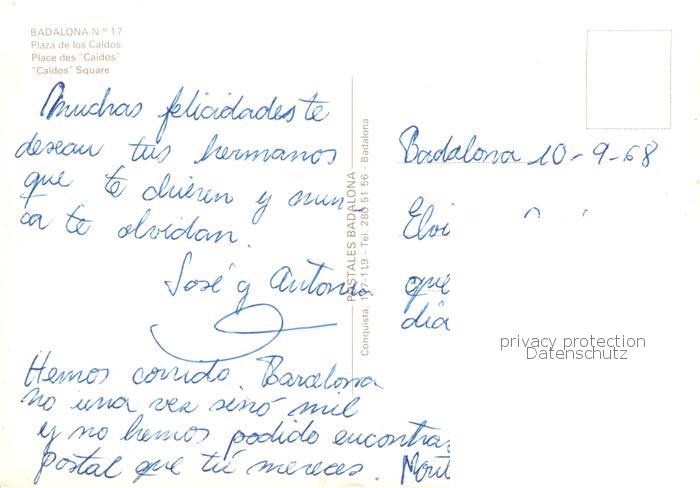 BADALONA N.º 17
Plaza de los Caídos
Place des "Caidos"
"Caidos" Square
Muchas felicidades te
desean tus hermanos
que te quieren y nun-
ca te olvidan.
José y Antonia
Hemos corrido Barcelona
no una vez sinó mil
y no hemos podido encontrar
postal que tú mereces.
POSTALES BADALONA
Conquista, 117-119 - Tel. 280 51 56 - Badalona
Badalona 10-9-68
Elvi
que
día
Mont
privacy protection
Datenschutz